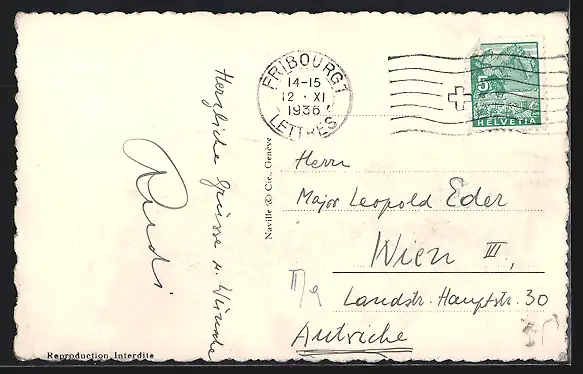 Herzliche Grüsse u. Wünsche
Rudi
Reproduction Interdite
Naville & Cie., Genève
FRIBOURG 1
14-15
12 · XI
1936
LETTRES
5
HELVETIA
Herrn
Major Leopold Eder
Wien III,
Landstr. Hauptstr. 30
Autriche